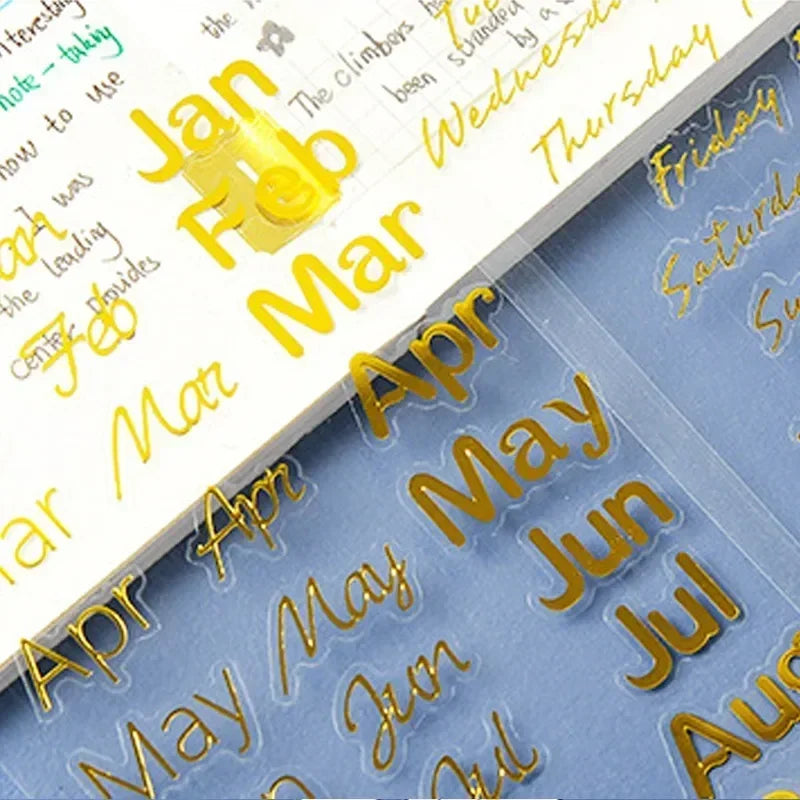 note-taking
how to use
was
the leading
center provides
the
The climbers
been stranded
by a
Jan
Feb
Mar
Apr
May
Jun
Jul
Feb
Mar
Apr
May
Jun
Jul
Apr
May
Wednesday
Thursday
Friday